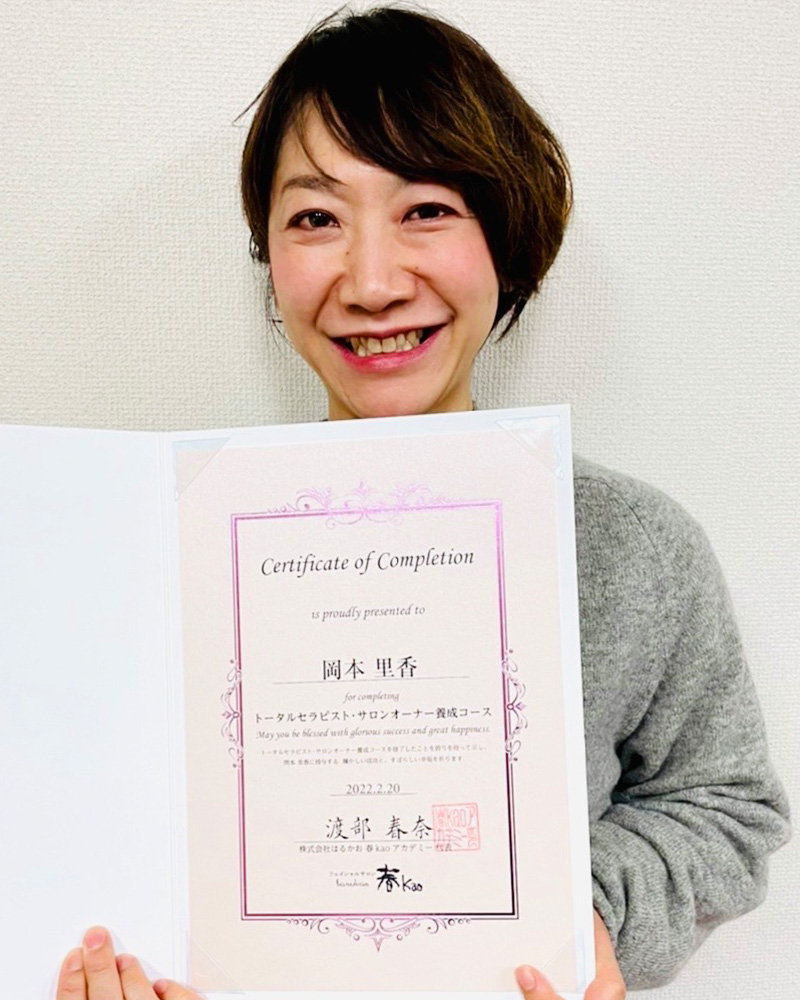 Certificate of Completion
is proudly presented to
岡本 里香
for completing
トータルセラピスト・サロンオーナー養成コース
May you be blessed with glorious success and great happiness.
トータルセラピスト・サロンオーナー養成コースを修了したことを誇りを持って示し、
岡本 里香に授与する 輝かしい成功と、すばらしい幸福を祈ります
2022.2.20
渡部 春奈
株式会社はるかお 春kaoアカデミー 代表
フェイシャルサロン
春kao